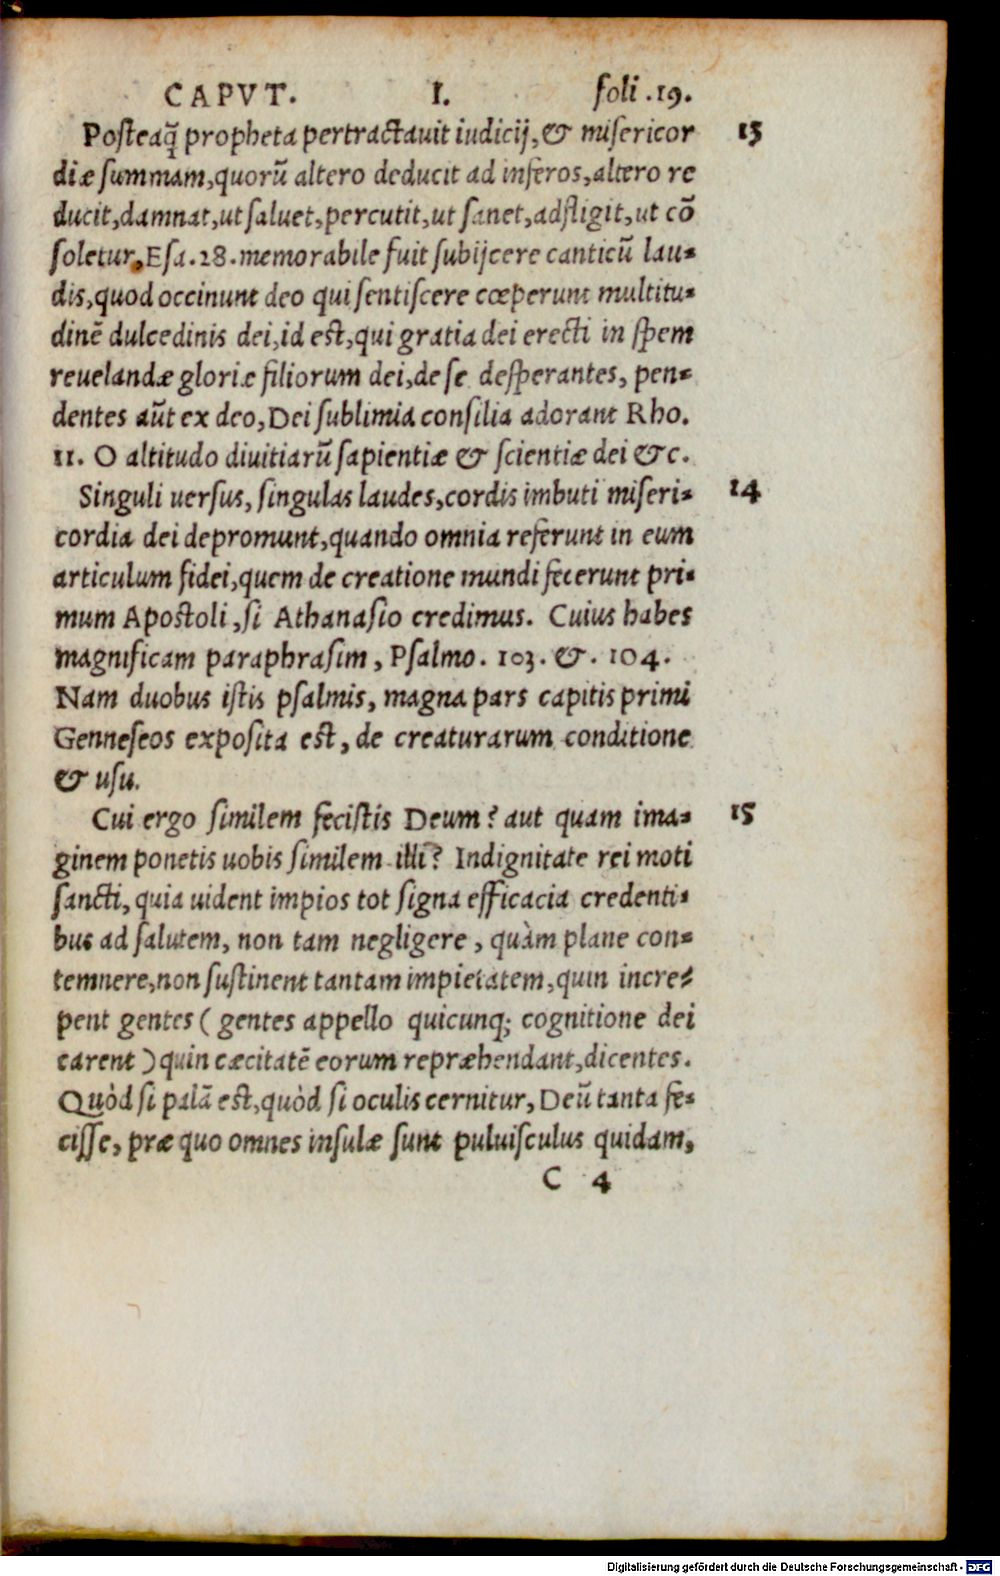 CAPVT. I. foli .19.
Posteaq̃ propheta pertractauit iudicij, & misericor 13
diæ summam, quorũ altero deducit ad inferos, altero re
ducit, damnat, ut saluet, percutit, ut sanet, adfligit, ut cõ
soletur, Esa .28. memorabile fuit subijcere canticũ lau-
dis, quod occinunt deo qui sentiscere cœperunt multitu-
dinẽ dulcedinis dei, id est, qui gratia dei erecti in spem
reuelandæ gloriæ filiorum dei, de se desperantes, pen-
dentes aũt ex deo, Dei sublimia consilia adorant Rho.
11. O altitudo diuitiarũ sapientiæ & scientiæ dei &c.
Singuli uersus, singulas laudes, cordis imbuti miseri- 14
cordia dei depromunt, quando omnia referunt in eum
articulum fidei, quem de creatione mundi fecerunt pri-
mum Apostoli, si Athanasio credimus. Cuius habes
magnificam paraphrasim, Psalmo. 103. &. 104.
Nam duobus istis psalmis, magna pars capitis primi
Genneseos exposita est, de creaturarum conditione
& usu.
Cui ergo similem fecistis Deum? aut quam ima- 15
ginem ponetis uobis similem illi? Indignitate rei moti
sancti, quia uident impios tot signa efficacia credenti-
bus ad salutem, non tam negligere, quàm plane con-
temnere, non sustinent tantam impietatem, quin incre-
pent gentes (gentes appello quicunq; cognitione dei
carent) quin cæcitatẽ eorum repræhendant, dicentes.
Quòd si palã est, quòd si oculis cernitur, Deũ tanta fe-
cisse, præ quo omnes insulæ sunt puluisculus quidam,
C 4
Digitalisierung gefördert durch die Deutsche Forschungsgemeinschaft - DFG